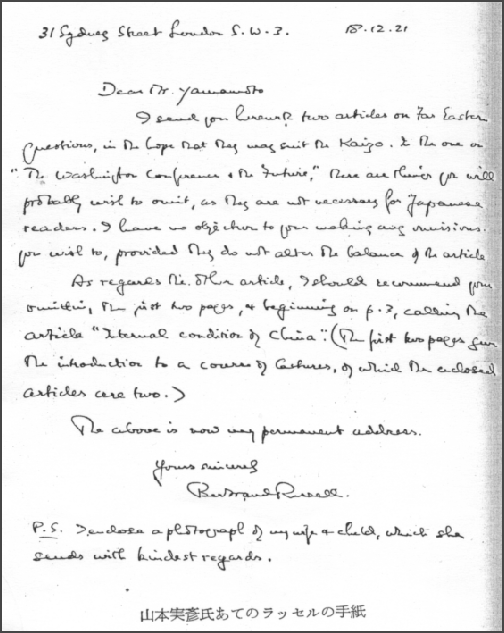 31 Sydney Street London S.W.3. 18.12.21
Dear Mr. Yamamoto
I send you herewith two articles on Far Eastern
questions, in the hope that they may suit the Kaizo. In the one on
"The Washington Conference & the Future," there are things you will
probably wish to omit, as they are not necessary for Japanese
readers. I have no objection to your making any omissions
you wish to, provided they do not alter the balance of the article
As regards the other article, I should recommend your
omitting the first two pages, & beginning on p.3, calling the
article "Internal condition of China". (The first two pages give
the introduction to a course of lectures, of which the enclosed
articles are two.)
The above is now my permanent address.
Yours sincerely
Bertrand Russell.
P.S. I enclose a photograph of my wife & child, which she
sends with kindest regards.
山本実彦氏あてのラッセルの手紙